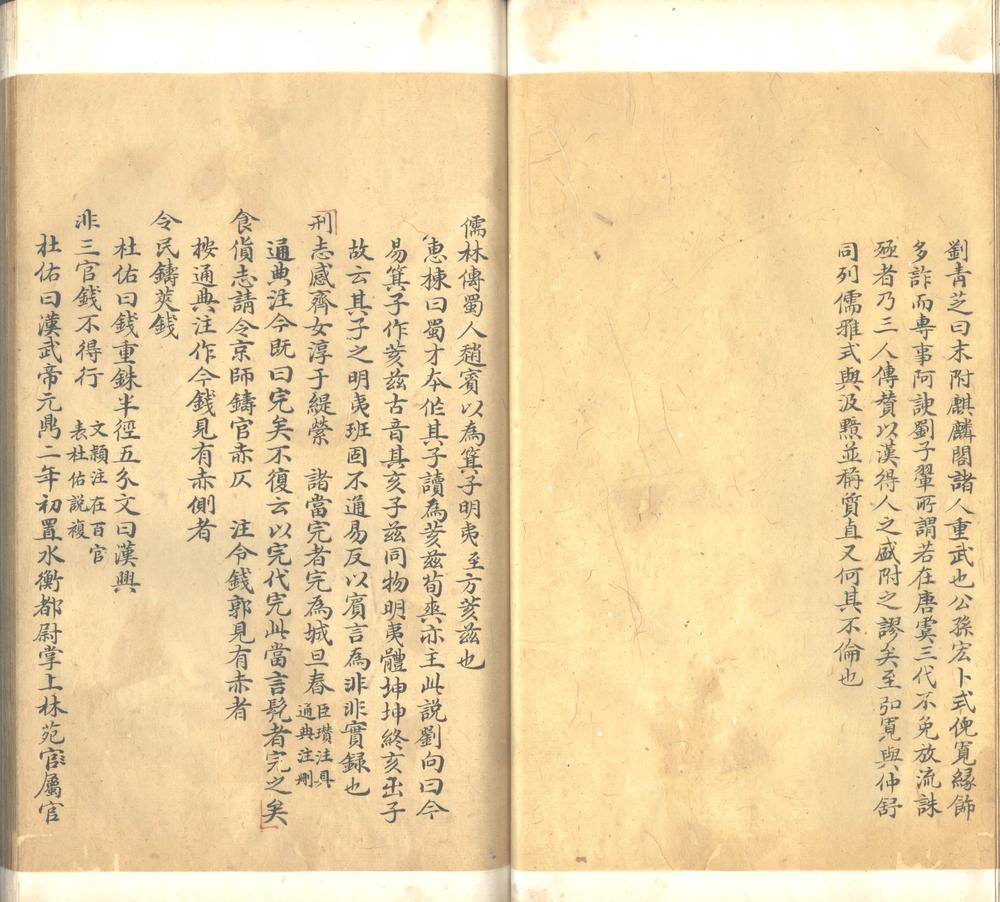 劉青芝曰末附麒麟閣諸人重武也公孫宏卜式倪寬緣飾
多詐而專事阿諛劉子翬所謂若在唐虞三代不免放流誅
殛者乃三人傳贊以漢得人之盛附之謬矣至弘寬與仲舒
同列儒雅式與汲黯並稱質直又何其不倫也
儒林傳蜀人趙賓以為箕子明夷至方荄茲也
惠棟曰蜀才本作其子讀為荄茲荀爽亦主此說劉向曰今
易箕子作荄茲古音其亥子茲同物明夷體坤坤終亥出子
故云其子之明夷班固不通易反以賓言為非非實錄也
刑志感齊女淳于緹縈 諸當完者完為城旦舂 臣瓚注具
通典注刪
通典注今既曰完矣不復云以完代完此當言髡者完之矣
食貨志請令京師鑄官赤仄 注令錢郭見有赤者
按通典注作今錢見有赤側者
令民鑄莢錢
杜佑曰錢重銖半徑五分文曰漢興
非三官錢不得行 文穎注在百官
表杜佑說複
杜佑曰漢武帝元鼎二年初置水衡都尉掌上林苑官屬官